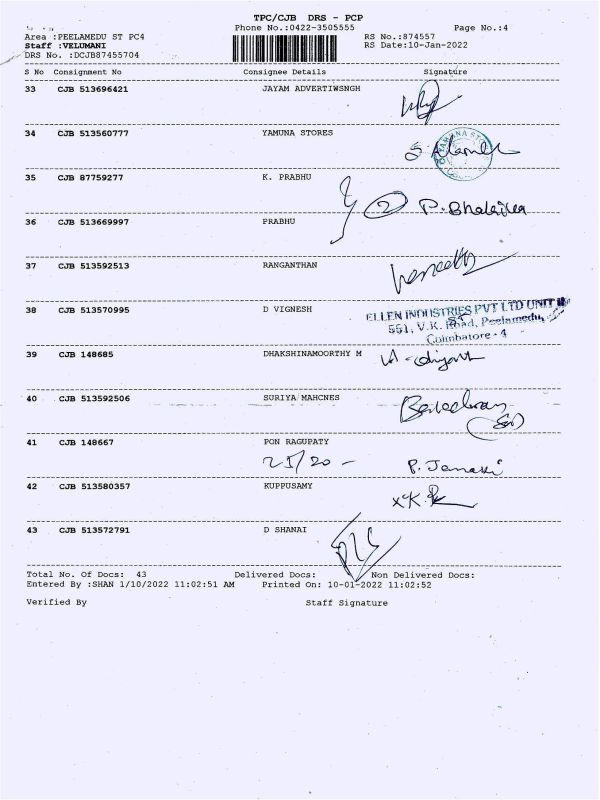 TPC/CJB DRS - PCP
Phone No.:0422-3505555 Page No.:4
Area :PEELAMEDU ST PC4 RS No.:874557
Staff :VELUMANI RS Date:10-Jan-2022
DRS No. :DCJB87455704
S No Consignment No Consignee Details Signature
33 CJB 513696421 JAYAM ADVERTIWSNGH
34 CJB 513560777 YAMUNA STORES
35 CJB 87759277 K. PRABHU
2
36 CJB 513669997 PRABHU
37 CJB 513592513 RANGANTHAN
38 CJB 513570995 D VIGNESH
ELLEN INDUSTRIES PVT LTD UNIT
551, V.K. Road, Peelamedu,
Coimbatore - 4
39 CJB 148685 DHAKSHINAMOORTHY M
40 CJB 513592506 SURIYA MAHCNES
41 CJB 148667 PON RAGUPATY
P. Janaki
42 CJB 513580357 KUPPUSAMY
43 CJB 513572791 D SHANAI
Total No. Of Docs: 43 Delivered Docs: Non Delivered Docs:
Entered By :SHAN 1/10/2022 11:02:51 AM Printed On: 10-01-2022 11:02:52
Verified By Staff Signature